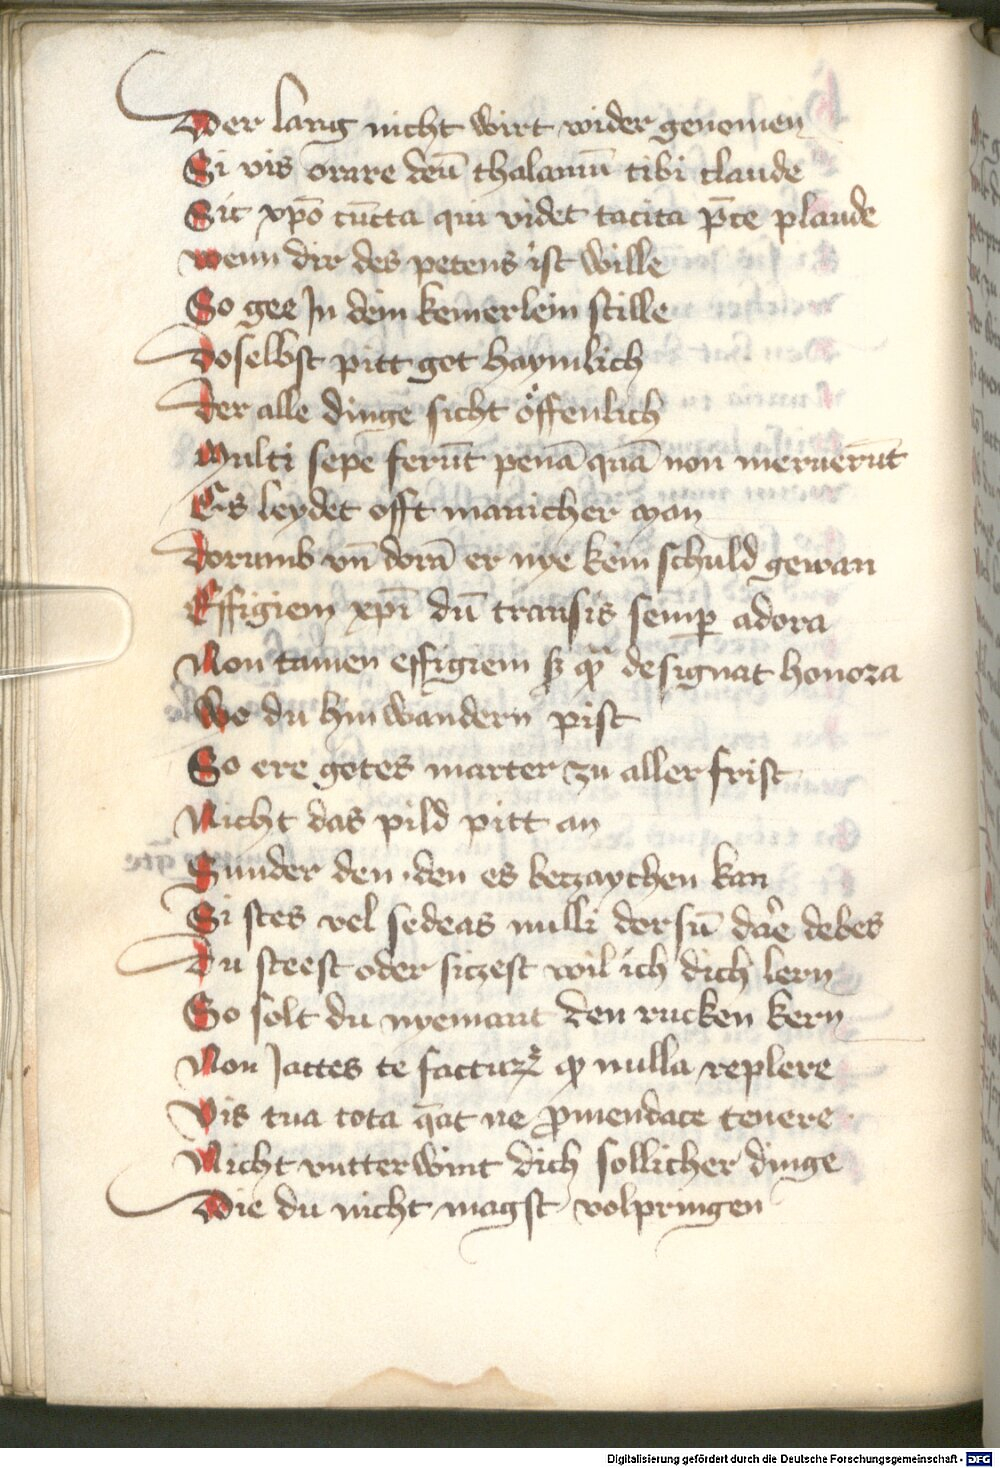 Der lang nicht wirt wider genomen
Si vis orare deū thalamū tibi claude
Sic xp̄o cūcta qui videt tacita p̄ce plaude
wenn dir des petens ist wille
So gee Jn dein kemerlein stille
Doselbst pitt got haymlich
Der alle dinge sicht öffenlich
Multi sepe ferūt penā quā non meruerūt
Es leydet offt mannicher man
Dorumb vn̄ dorā er nye kein schuld gewan
Effigiem xp̄i dū transis semꝑ adora
Non tamen effigiem sꝫ qm̄ designat honora
Wo du hin wandern pist
So ere gotes marter zu aller frist
Nicht das pild pitt an
Sunder den den es betzaychen kan
Si stes vel sedeas nulli dorsū dare debes
Du steest oder siczest wil ich dich lern
So solt du nyemant den rucken kern
Non Jactes te facturꝝ qͥ nulla replere
Vis tua tota q̄at ne ꝓmendace tenere
Nicht vntterwint dich sollicher dinge
Die du nicht magst volpringen
Digitalisierung gefördert durch die Deutsche Forschungsgemeinschaft - DFG